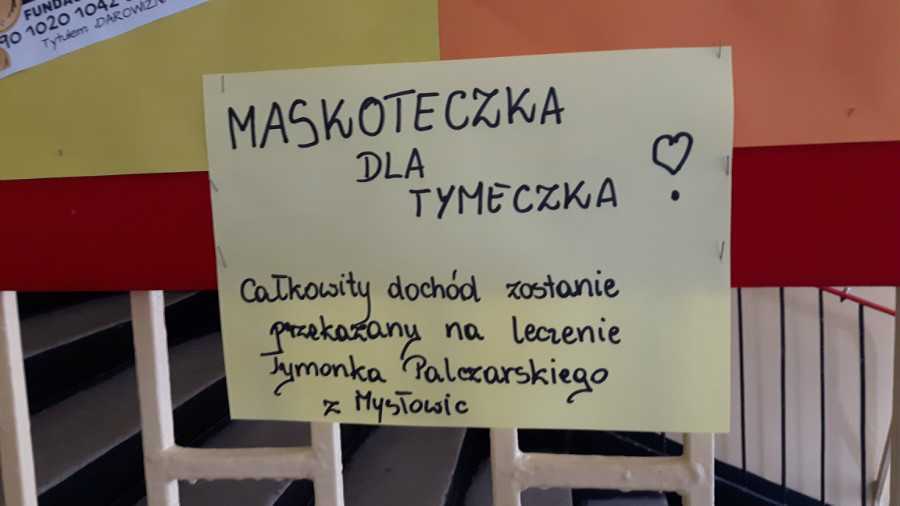 FUNDA
90 1020 1042
Tytułem DAROWIZN
MASKOTECZKA
DLA
TYMECZKA
Całkowity dochód zostanie
przekazany na leczenie
Tymonka Palczarskiego
z Mysłowic